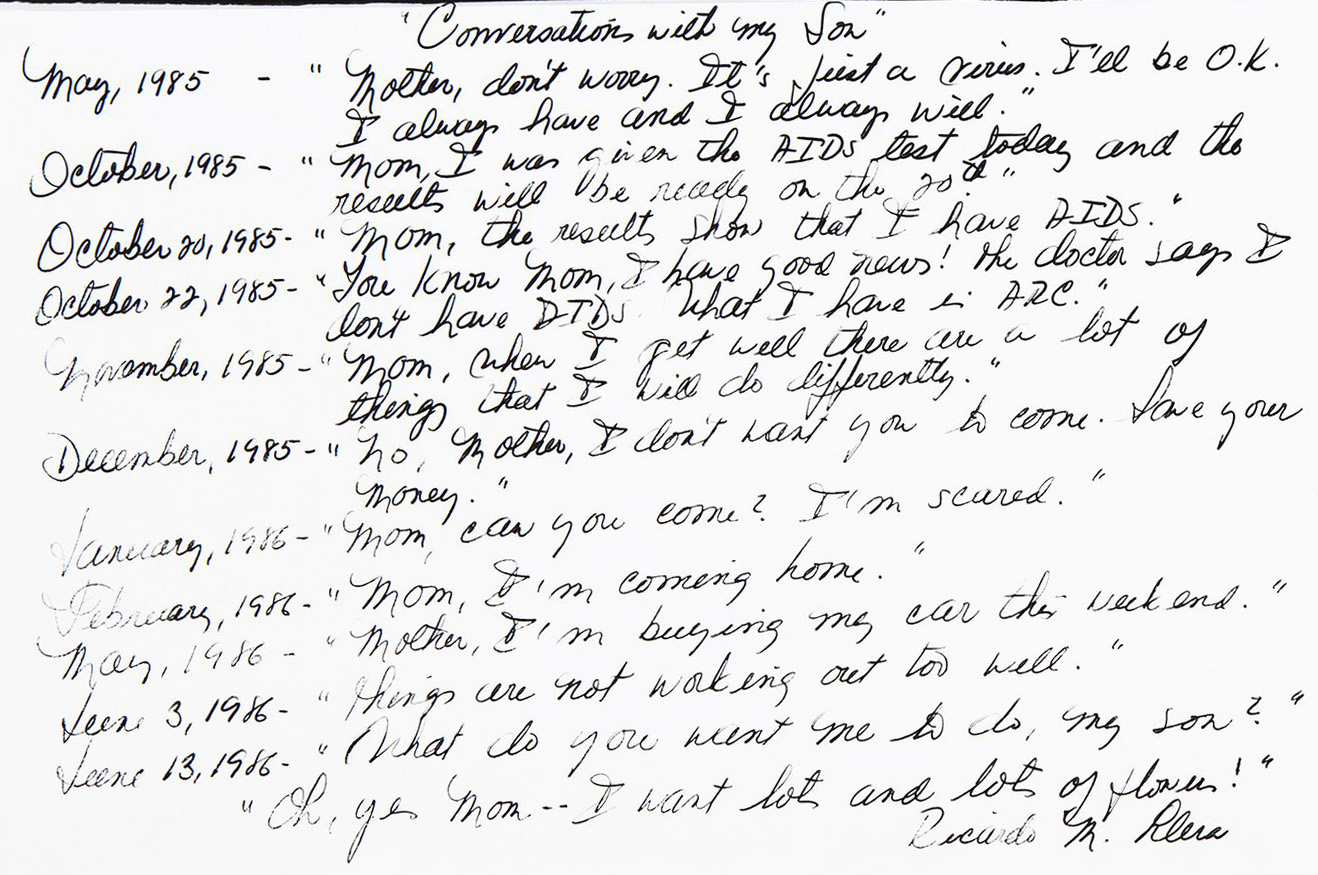 "Conversations with my Son"
May, 1985 - "Mother, don't worry. It's just a virus. I'll be O.K.
I always have and I always will."
October, 1985 - "Mom, I was given the AIDs test today and the
results will be ready on the 20th."
October 20, 1985- "Mom, the results show that I have AIDS."
October 22, 1985- "You know Mom, I have good news! The doctor says I
don't have AIDs. What I have is ARC."
November, 1985 - "Mom, when I get well there are a lot of
things that I will do differently."
December, 1985 - "No, Mother, I don't want you to come. Save your
money."
January, 1986 - "Mom, can you come? I'm scared."
February, 1986 - "Mom, I'm coming home."
May, 1986 - "Mother, I'm buying my car this weekend."
June 3, 1986- "Things are not working out too well."
June 13, 1986- "What do you want me to do, my son?"
"Oh, yes Mom -- I want lots and lots of flowers!"
Ricardo M.